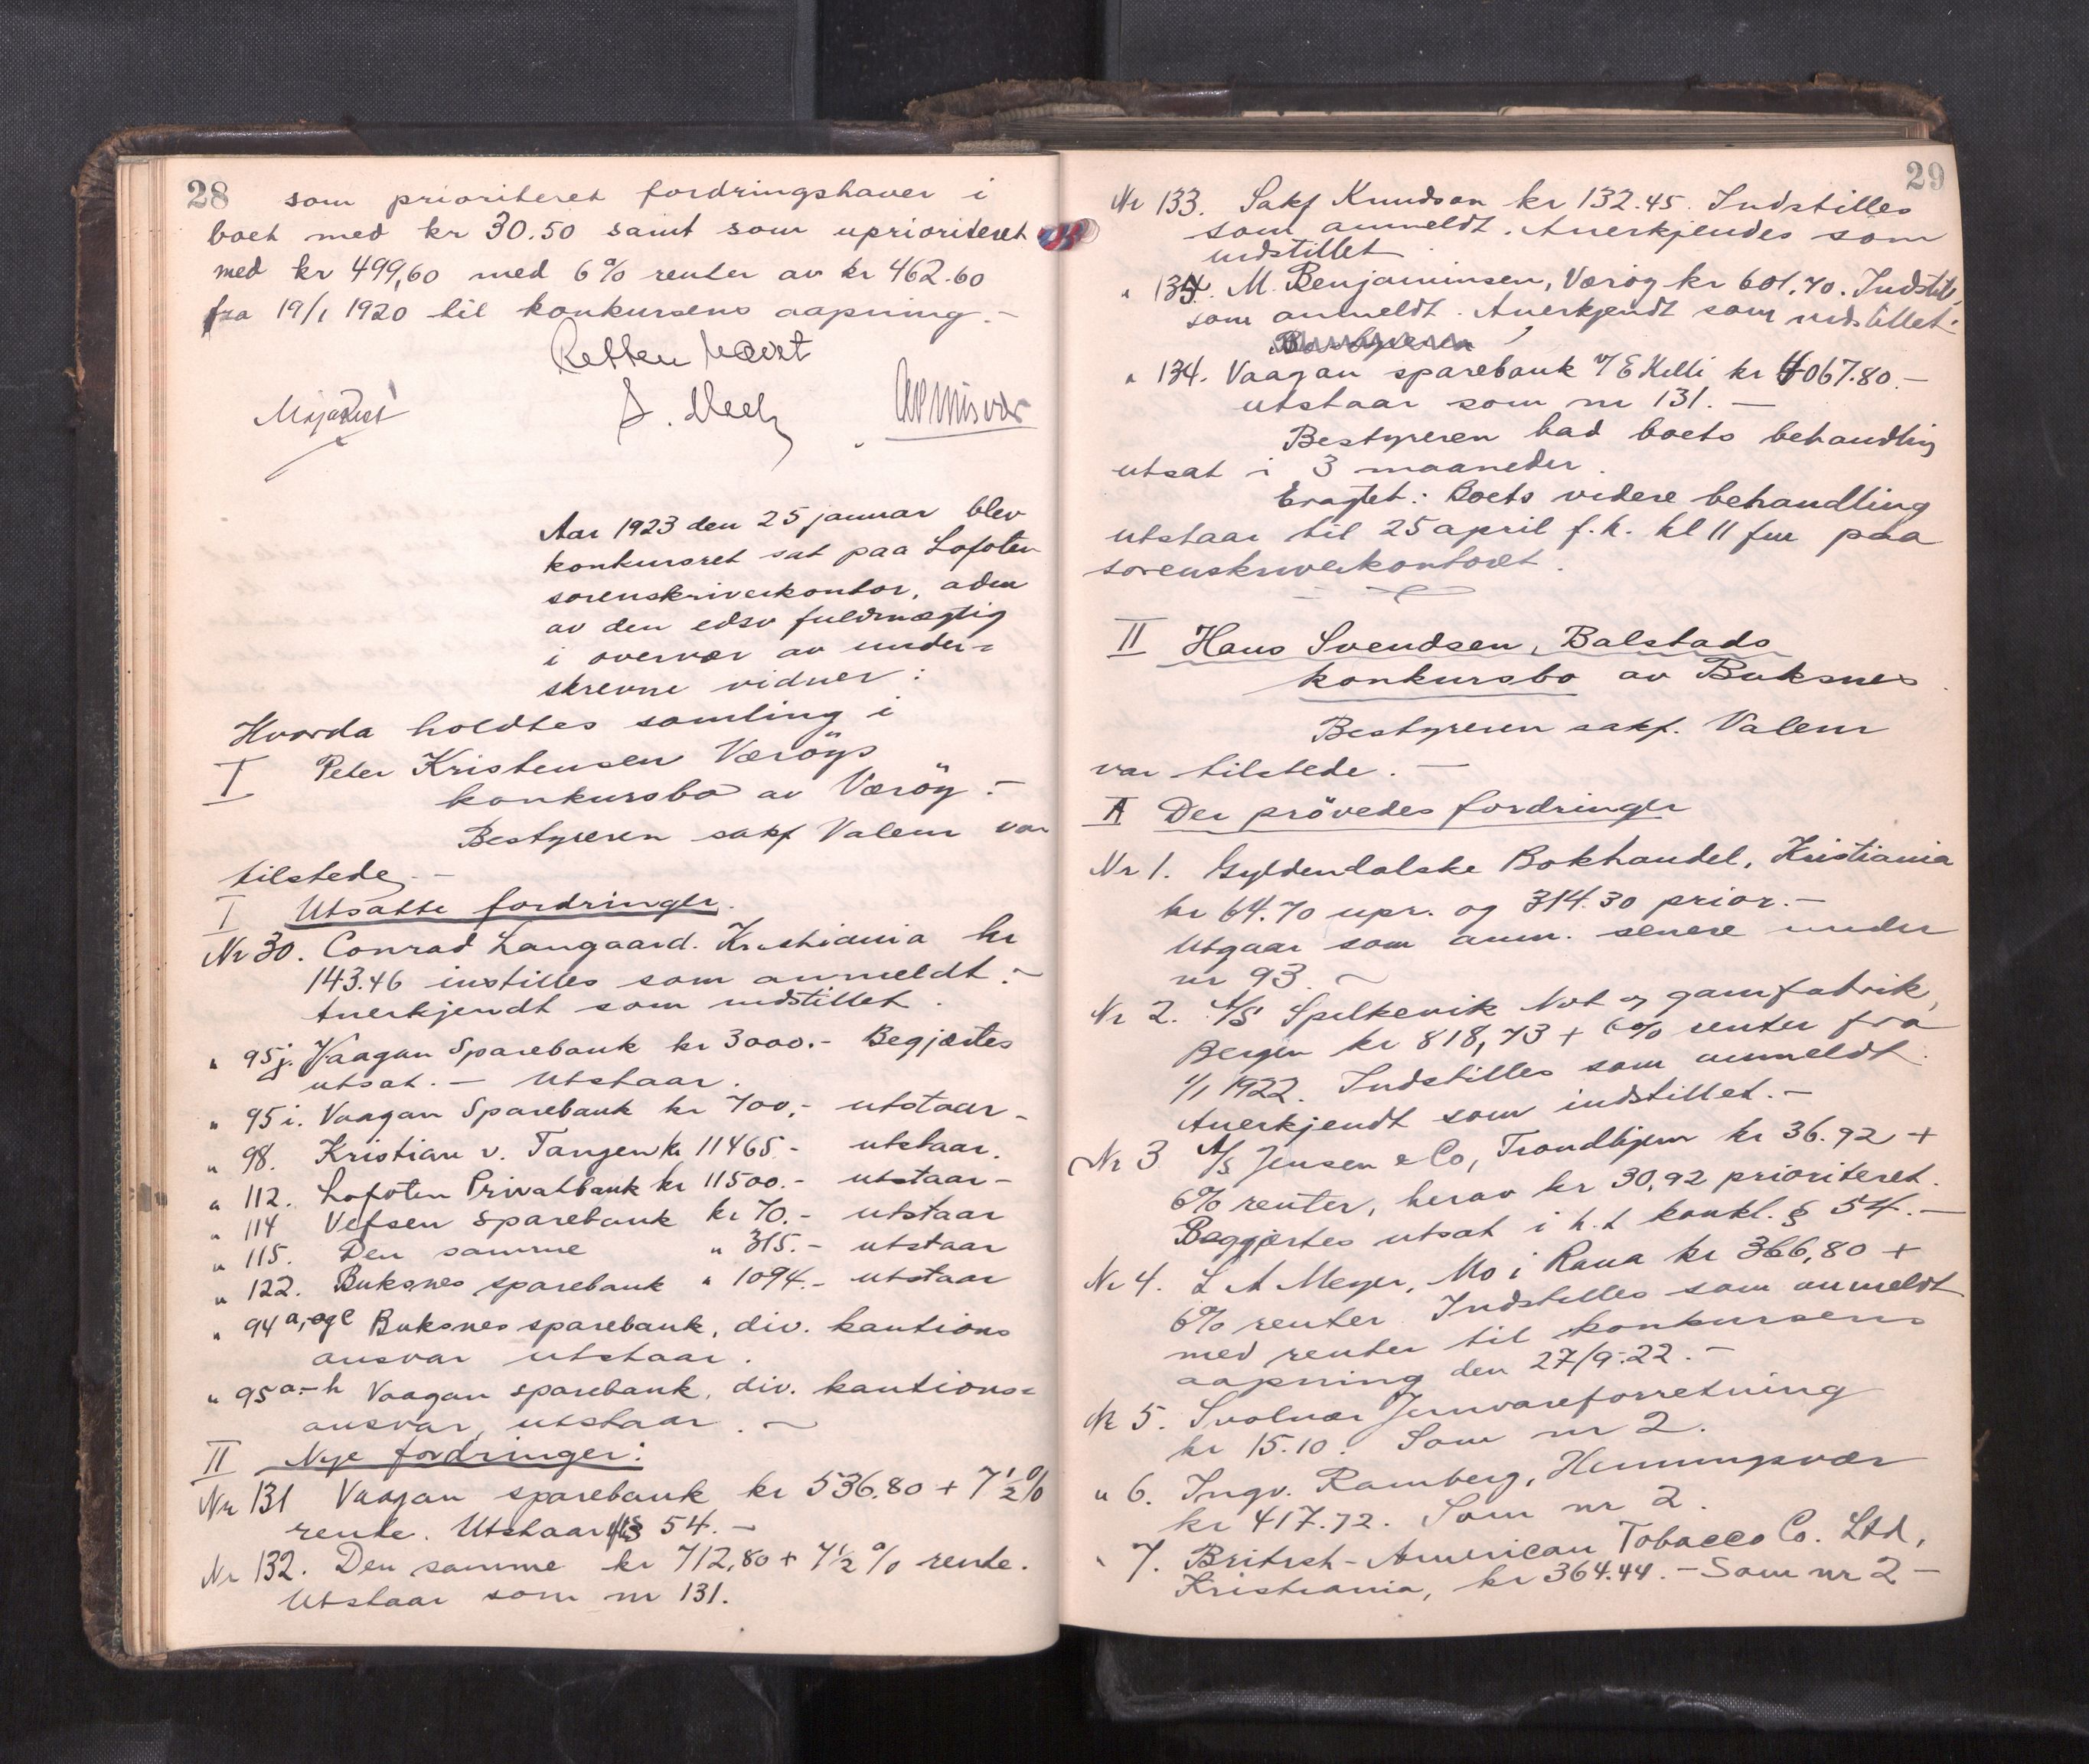 28
som prioriteret fordringshaver i
boet med kr 30.50 samt som uprioriteret
med kr 499,60 med 6% renter av kr 462.60
fra 19/1 1920 til konkursens aapning.-
Retten hævet
Aar 1923 den 25 januar blev
konkursret sat paa Lofoten
sorenskriverkontor, adm
av den edsv fuldmægtig
i overvær av under=
skrevne vidner:
Hvorda holdtes samling i
I Peter Kristensen Værøys
konkursbo av Værøy.-
Bestyreren sakf Valem var
tilstede.-
I Utsatte fordringer.
Nr 30. Conrad Langaard. Kristiania kr
143.46 instilles som anmeldt.-
Anerkjendt som indstillet.
" 95j. Vaagan Sparebank kr 3000.- Begjærtes
utsat.- Utstaar.
" 95i. Vaagan Sparebank kr 700,- utstaar-
" 98. Kristian v. Tangen kr 11465.- utstaar.
" 112. Lofoten Privatbank kr 11500.- utstaar-
" 114 Vefsen sparebank kr 70.- utstaar
" 115. Den samme " 315.- utstaar
" 122. Buksnes sparebank " 1094.- utstaar
" 94 a, og e Buksnes sparebank, div. kautions
ansvar utstaar.
" 95 a-h Vaagan sparebank, div. kautions=
ansvar, utstaar.
II Nye fordringer:
Nr 131 Vaagan sparebank kr 536.80 + 7½%
rente. Utstaar § 54.-
Nr 132. Den samme kr 712,80 + 7½% rente.
Utstaar som nr 131.
29
Nr 133. Sakf Knudson kr 132.45. Indstilles
som anmeldt. Anerkjendes som
indstillet
" 135. M. Benjaminsen, Værøy kr 601.70. Indstil,
som anmeldt. Anerkjendt som indstillet.
Bestyreren
" 134. Vaagan sparebank v/ E Kelli kr 4067.80.-
utstaar som nr 131.-
Bestyreren bad boets behandling
utsat i 3 maaneder.
Eragtet: Boets videre behandling
utstaar til 25 april f.k. kl 11 fm paa
sorenskriverkontoret.
II Hans Svendsen, Balstads
konkursbo av Buksnes.
Bestyreren sakf. Valem
var tilstede.-
A Der prövedes fordringer
Nr 1. Gyldendalske Bokhandel, Kristiania
kr 64.70 upr. og 314.30 prior.-
Utgaar som anm. senere under
nr 93.
Nr 2. A/S Spilkevik Not og garnfabrik,
Bergen kr 818,73 + 6% renter fra
1/1 1922. Indstilles som anmeldt.
Anerkjendt som indstillet.-
Nr 3 A/S Jensen & Co, Trondhjem kr 36.92 +
6% renter, herav kr 30,92 prioriteret.
Beggjærtes utsat i h.t konkl. § 54.-
Nr 4. L A Meyer, Mo i Rana kr 366,80 +
6% renter. Indstilles som anmeldt
med renter til konkursens
aapning den 27/9-22.-
Nr 5. Svolvær Jernvareforretning
kr 15.10. Som nr 2.
" 6. Ingv. Ramberg, Henningsvær
kr 417.72. Som nr 2.
" 7. British-American Tobacco Co. Ltd,
Kristiania, kr 364.44.- Som nr 2-